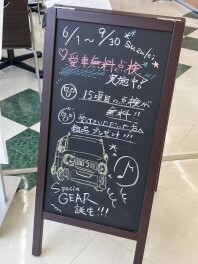 6/1~9/30 Suzuki
愛車無料点検
実施中。
15項目の点検が
無料!!
受けていただいた方へ
粗品プレゼント!!!
Spacia
GEAR
誕生!!!